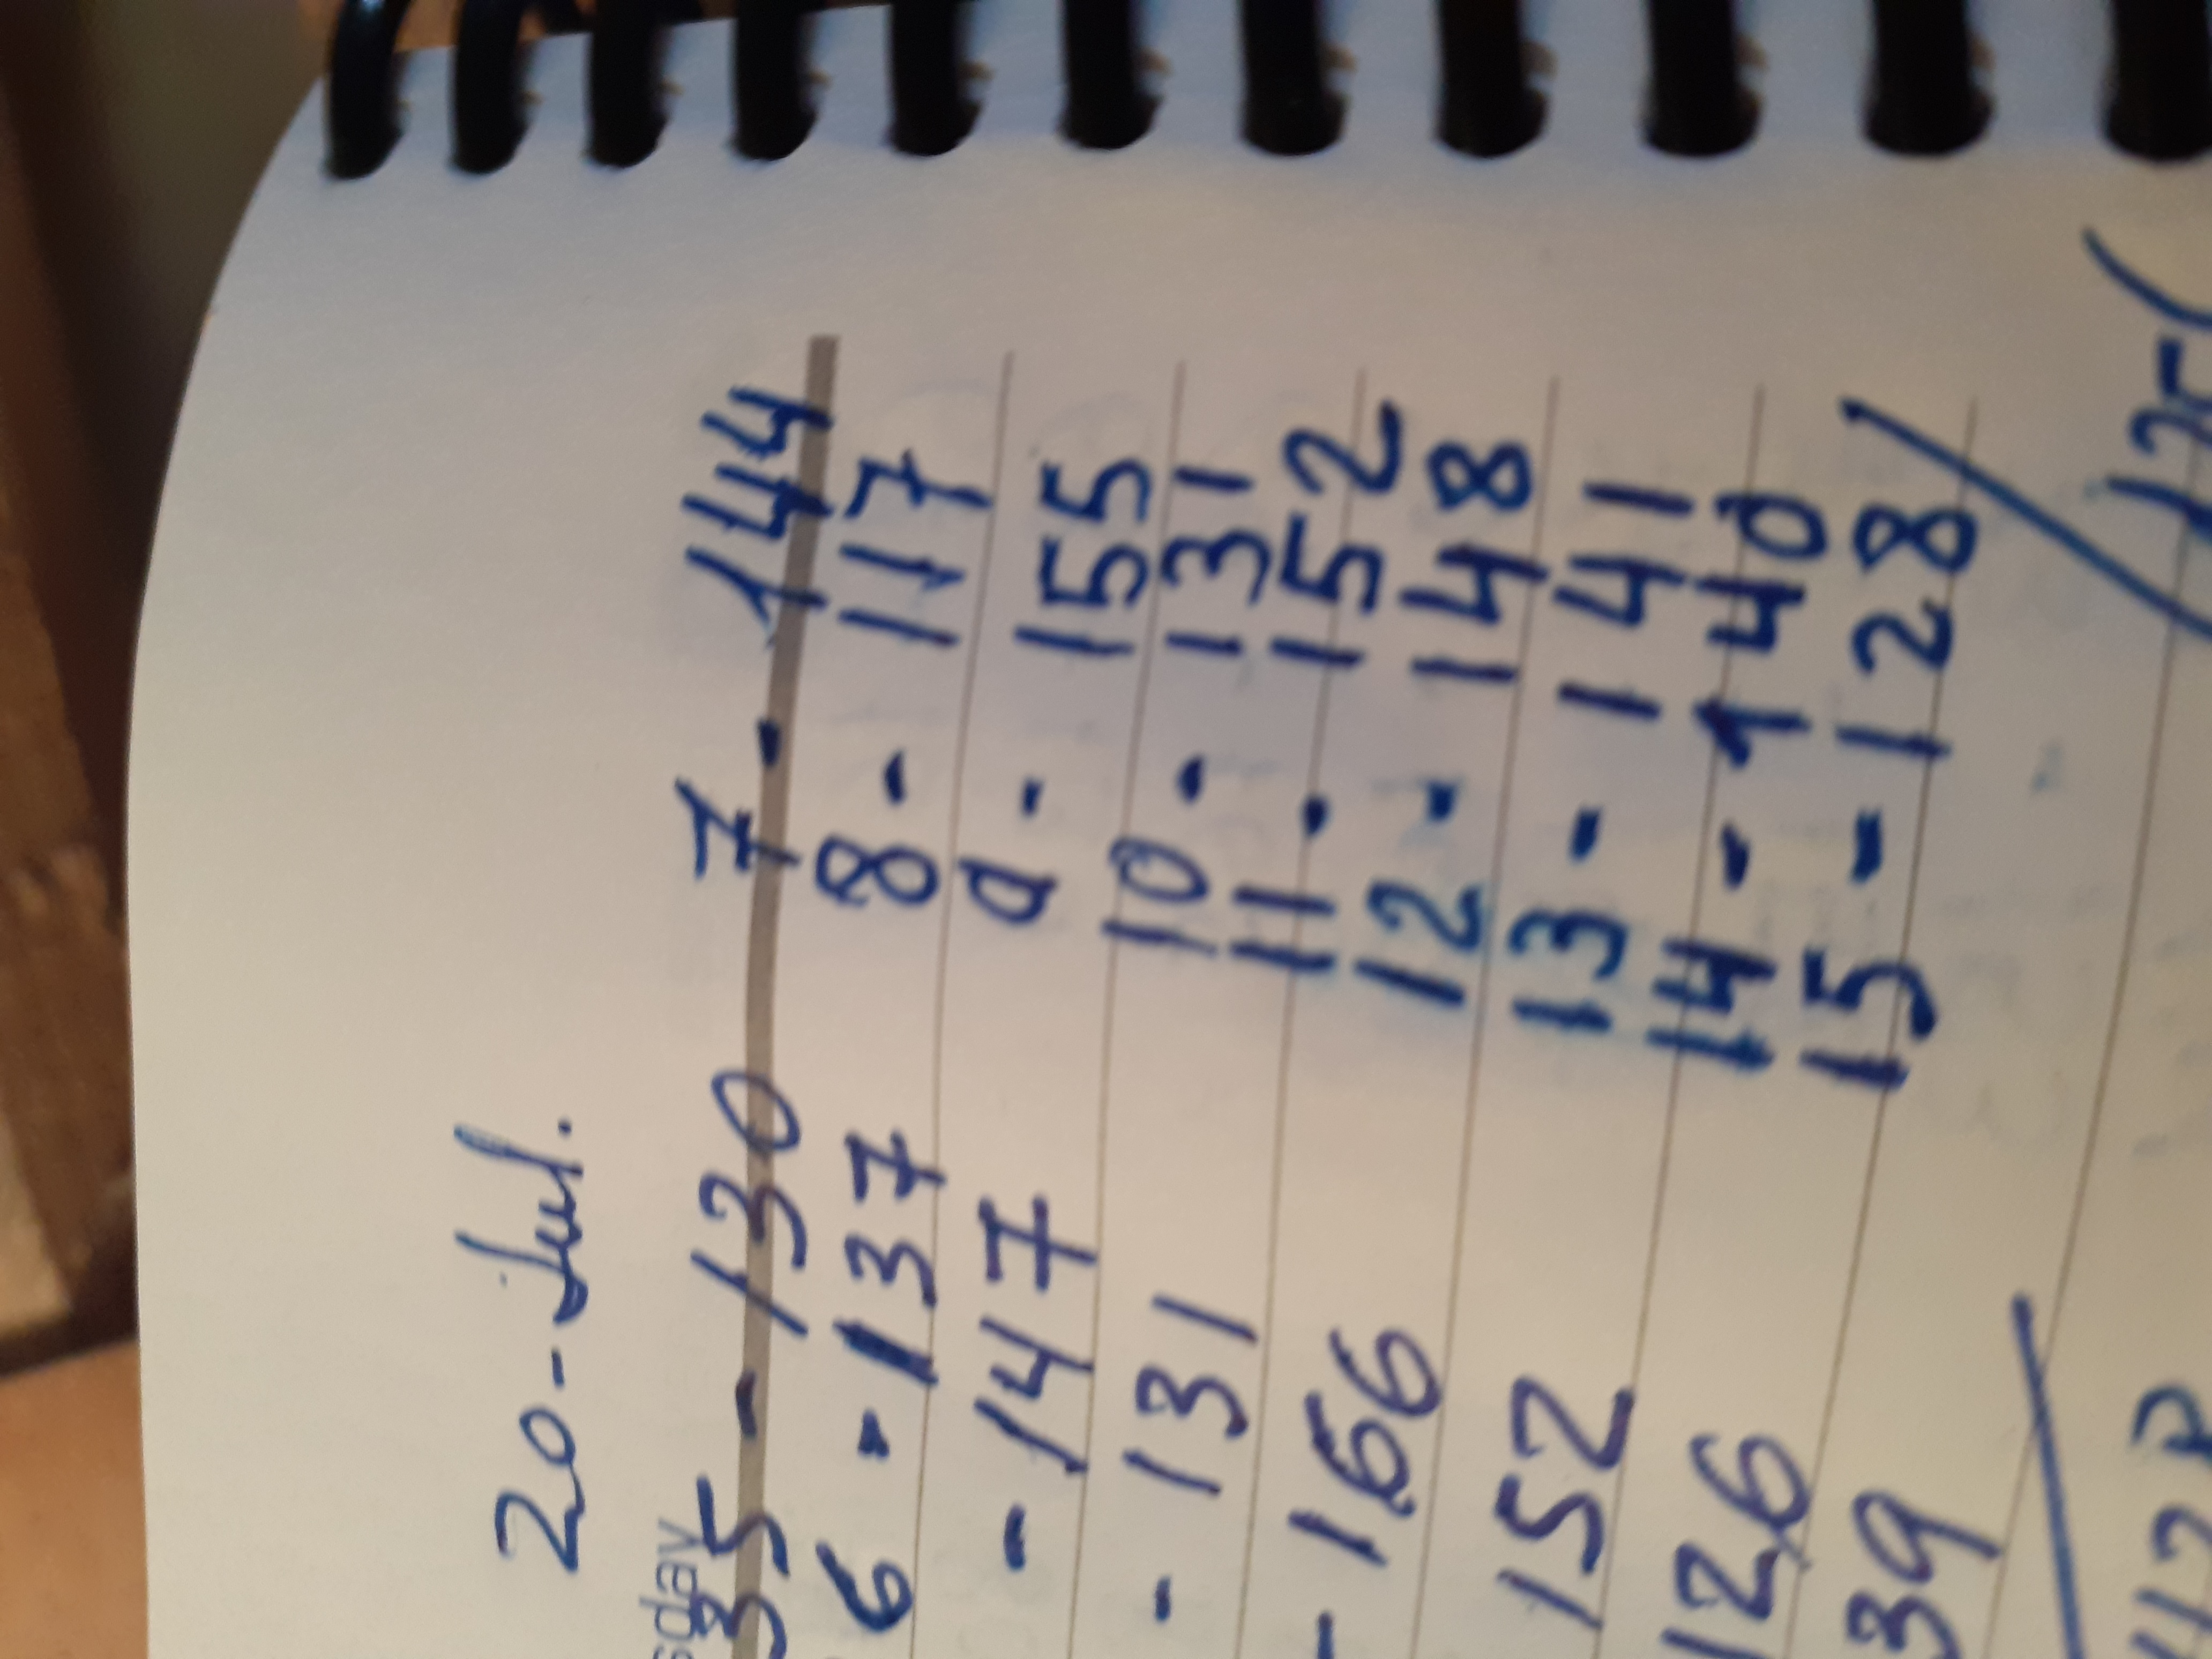 20-Jul.
sday
35 - 130 7 - 144
6 - 137 8 - 117
- 147 9 - 155
- 131 10 - 131
- 166 11 - 152
152 12 - 148
126 13 - 141
39 14 - 140
15 - 128